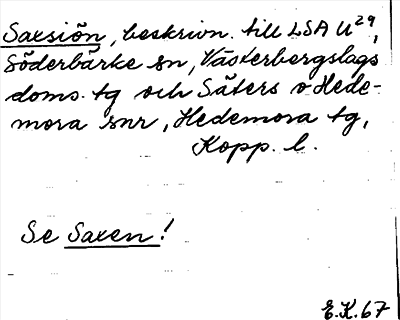 Saxsiön, beskrivn. till LSA U²⁹,
Söderbärke sn, Västerbergslags
doms. tg och Säters o Hede-
mora snr, Hedemora tg,
Kopp. l.
Se Saxen!
E.K.67